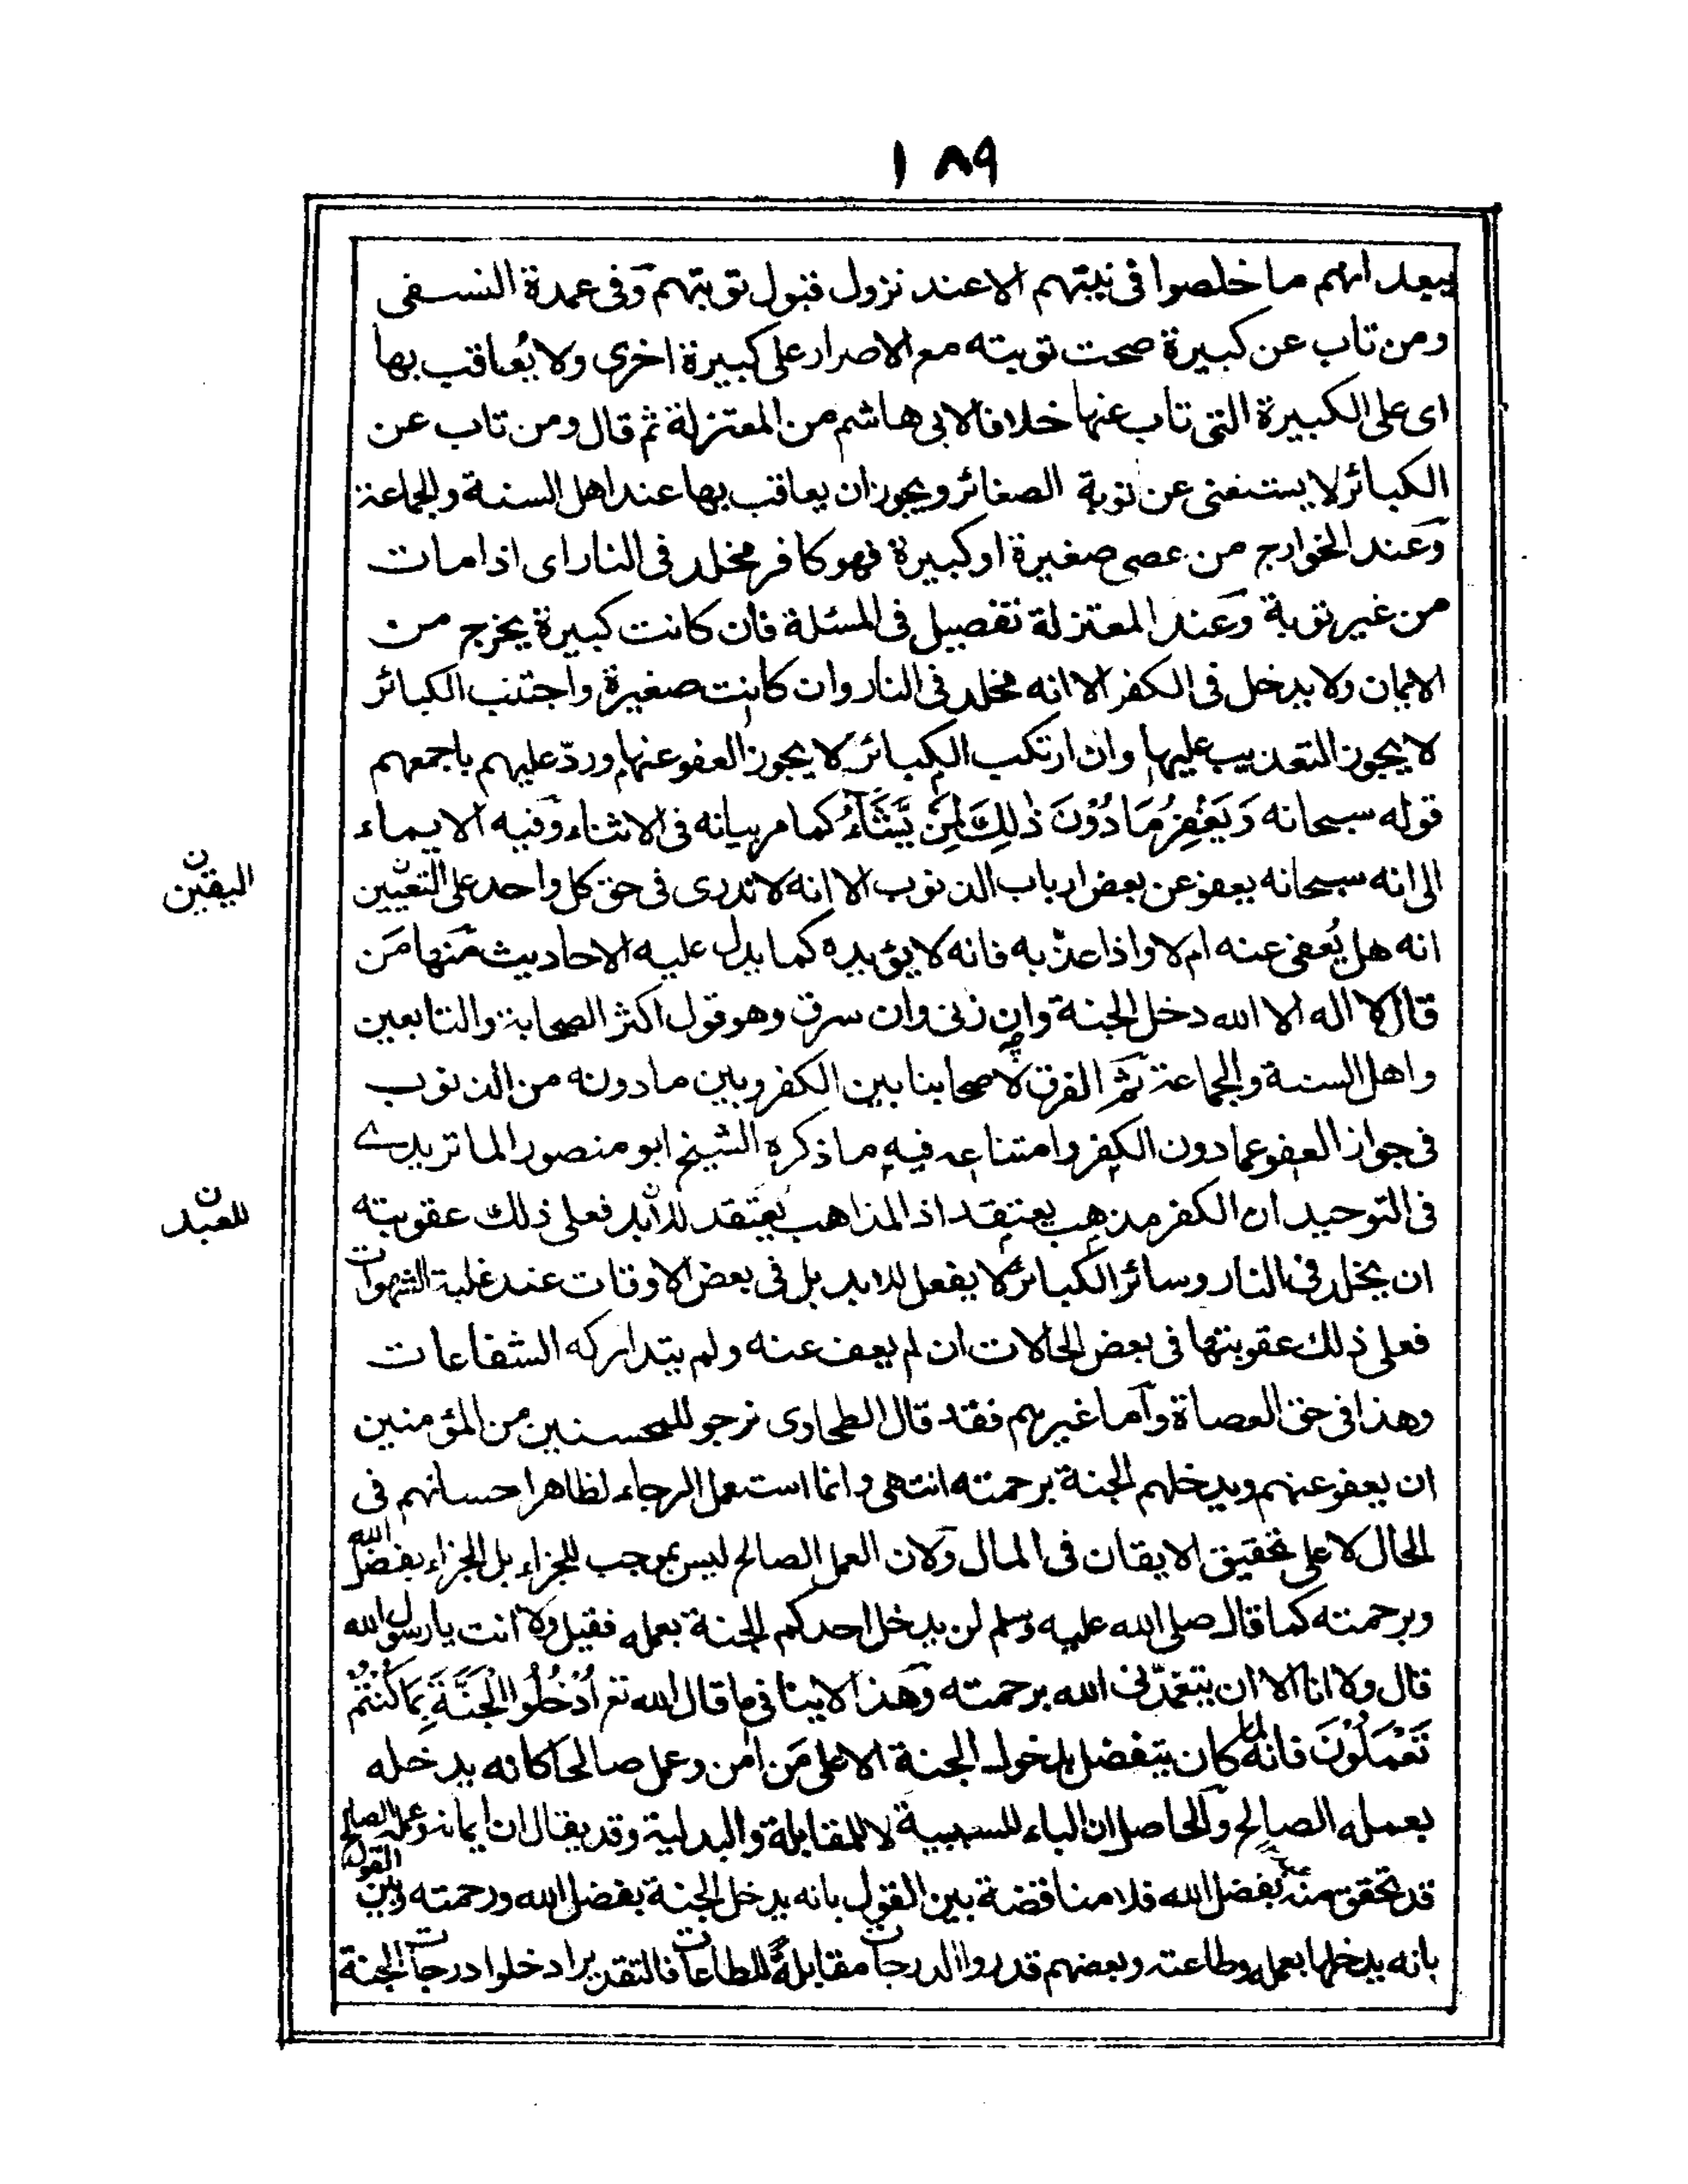 ١٨٩
يبعد انهم ما خلصوا فى نيتهم الا عند نزول قبول توبتهم وفى عمدة النسفى
ومن تاب عن كبيرة صحت توبته مع الاصرار على كبيرة اخرى ولا يُعاقب بها
اى على الكبيرة التى تاب عنها خلافا لابى هاشم من المعتزلة ثم قال ومن تاب عن
الكبائر لا يستغنى عن توبة الصغائر ويجوز ان يعاقب بها عند اهل السنة والجماعة
وعند الخوارج من عصى صغيرة او كبيرة فهو كافر مخلد فى النار اى اذا مات
من غير توبة وعند المعتزلة تفصيل فى المسئلة فان كانت كبيرة يخرج من
الايمان ولا يدخل فى الكفر الا انه مخلد فى النار وان كانت صغيرة واجتنب الكبائر
لا يجوز التعذيب عليها وان ارتكب الكبائر لا يجوز العفو عنها وردّ عليهم باجمعهم
قوله سبحانه وَيَغْفِرُ مَا دُوْنَ ذٰلِكَ لِمَنْ يَّشَآءُ كما مر بيانه فى الاثناء وفيه الايماء
الى انه سبحانه يعفو عن بعض ارباب الذنوب الا انه لا تدرى فى حق كل واحد على التعيين
اليقين ن
انه هل يُعفى عنه ام لا واذا عذّبه فانه لا يؤبده كما يدل عليه الاحاديث منها مَن
قال لا اله الا الله دخل الجنة وان زنى وان سرق وهو قول اكثر الصحابة والتابعين
واهل السنة والجماعة ثم الفرق لاصحابنا بين الكفر وبين ما دونه من الذنوب
فى جواز العفو عما دون الكفر وامتناعه فيه ما ذكره الشيخ ابو منصور الماتريدے
فى التوحيد ان الكفر مذهب يعتقد اذ المذاهب يُعتقد للابد فعلى ذلك عقوبته
للعبد ن
ان يخلد فى النار وسائر الكبائر لا يفعل للابد بل فى بعض الاوقات عند غلبة الشهوات
فعلى ذلك عقوبتها فى بعض الحالات ان لم يعف عنه ولم يتداركه الشفاعات
وهذا فى حق العصاة وآما غيرهم فقد قال الطحاوى نرجو للمحسنين من المؤمنين
ان يعفو عنهم ويدخلهم الجنة برحمته انتهى وانما استعمل الرجاء لظاهر احسانهم فى
الحال لا على تحقيق الايقان فى المال ولان العمل الصالح ليس بموجب للجزاء بل الجزاء بفضل الله
وبرحمته كما قال صلى الله عليه وسلم لن يدخل احدكم الجنة بعمله فقيل ولا انت يا رسول الله
قال ولا انا الا ان يتغمّدنى الله برحمته وهذا لا ينافى ما قال الله تع اُدْخُلُوا الْجَنَّةَ بِمَا كُنْتُمْ
تَعْمَلُوْنَ فانه لما كان يتفضل بدخول الجنة الا على مَن اٰمن وعمل صالحا كانه يدخله
بعمله الصالح والحاصل ان الباء للسببية لا للمقابلة والبدلية وقد يقال ان ايمانه وعمله الصالح
قد تحقق منه بفضل الله فلا مناقضة بين القول بانه يدخل الجنة بفضل الله ورحمته وبين القول
بانه يدخلها بعمله وطاعته وبعضهم قدروا الدرجات مقابلةً للطاعات فالتقدير ادخلوا درجات الجنة